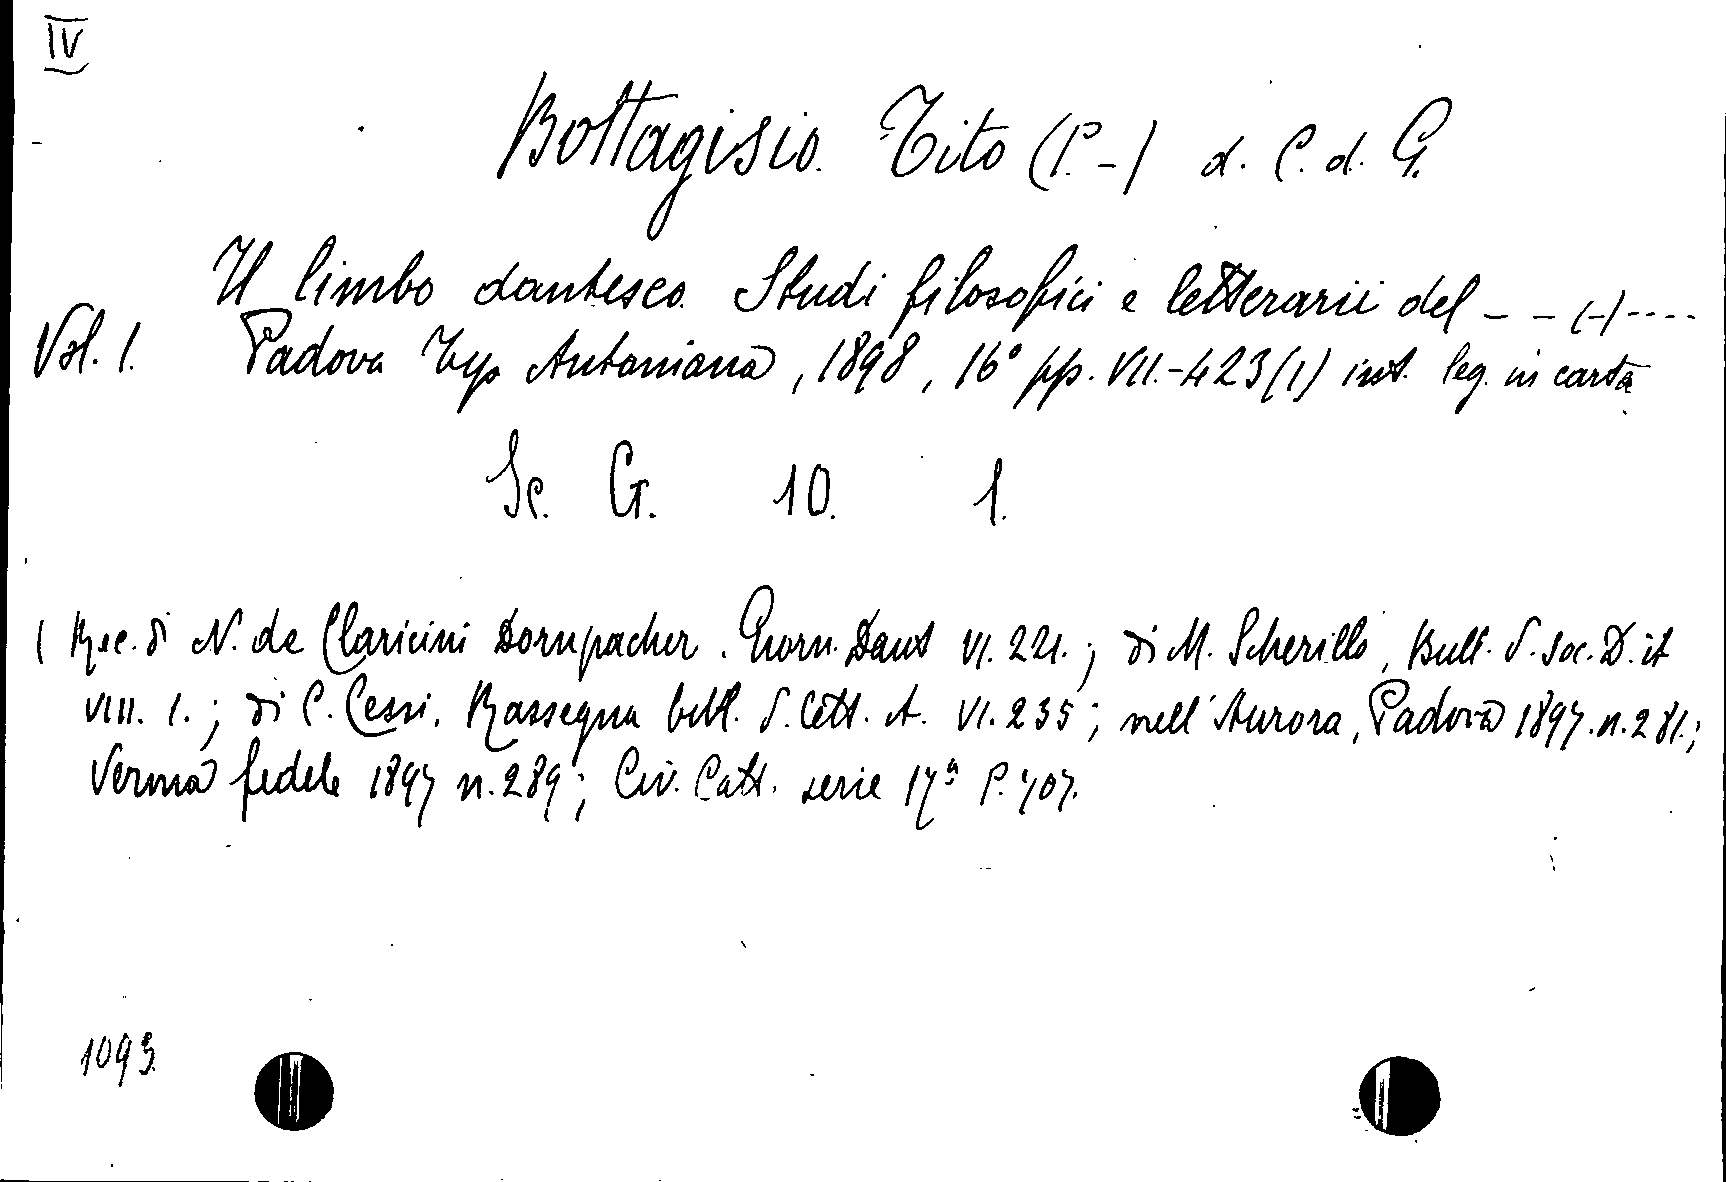 IV
Bottagisio. Tito (P. -) d. C. d. G.
Il limbo dantesco. Studi filosofici e letterarii del - - (-) ----
Vol. 1. Padova Typ Antoniana, 1898, 16° pp. VII.-423(1) int. leg. in carta
Sc. G. 10. 1.
( Rec. di N. de Claricini Dornpacher. Giorn. Dant VI. 221.; di M. Scherillo, Bull. d. Soc. D. it
VIII. 1.; di C. Cessi. Rassegna bibl. d. Lett. it. VI. 235; nell'Aurora, Padova 1897. n. 281.;
Verona fedele 1897 n. 289; Civ. Catt. serie 17ª P. 707.
1093.